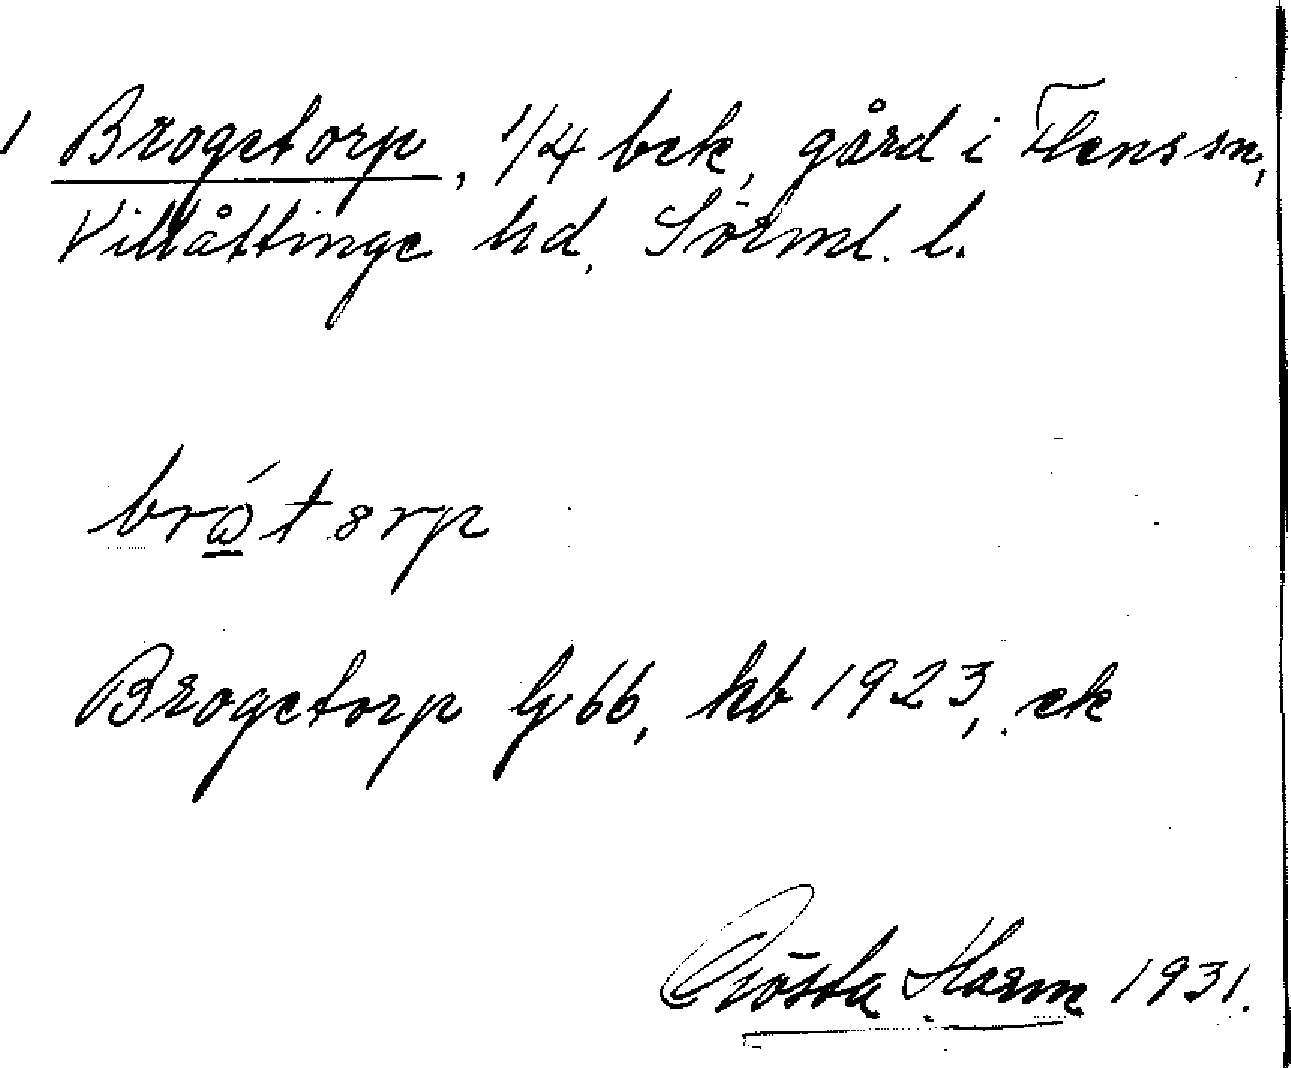 1 Brogetorp, 1/4 bek, gård i Flens sn,
Villåttinge hd, Sörml. l.
Brogetorp Gj66, hb 1923, ek
Gösta Horm 1931.